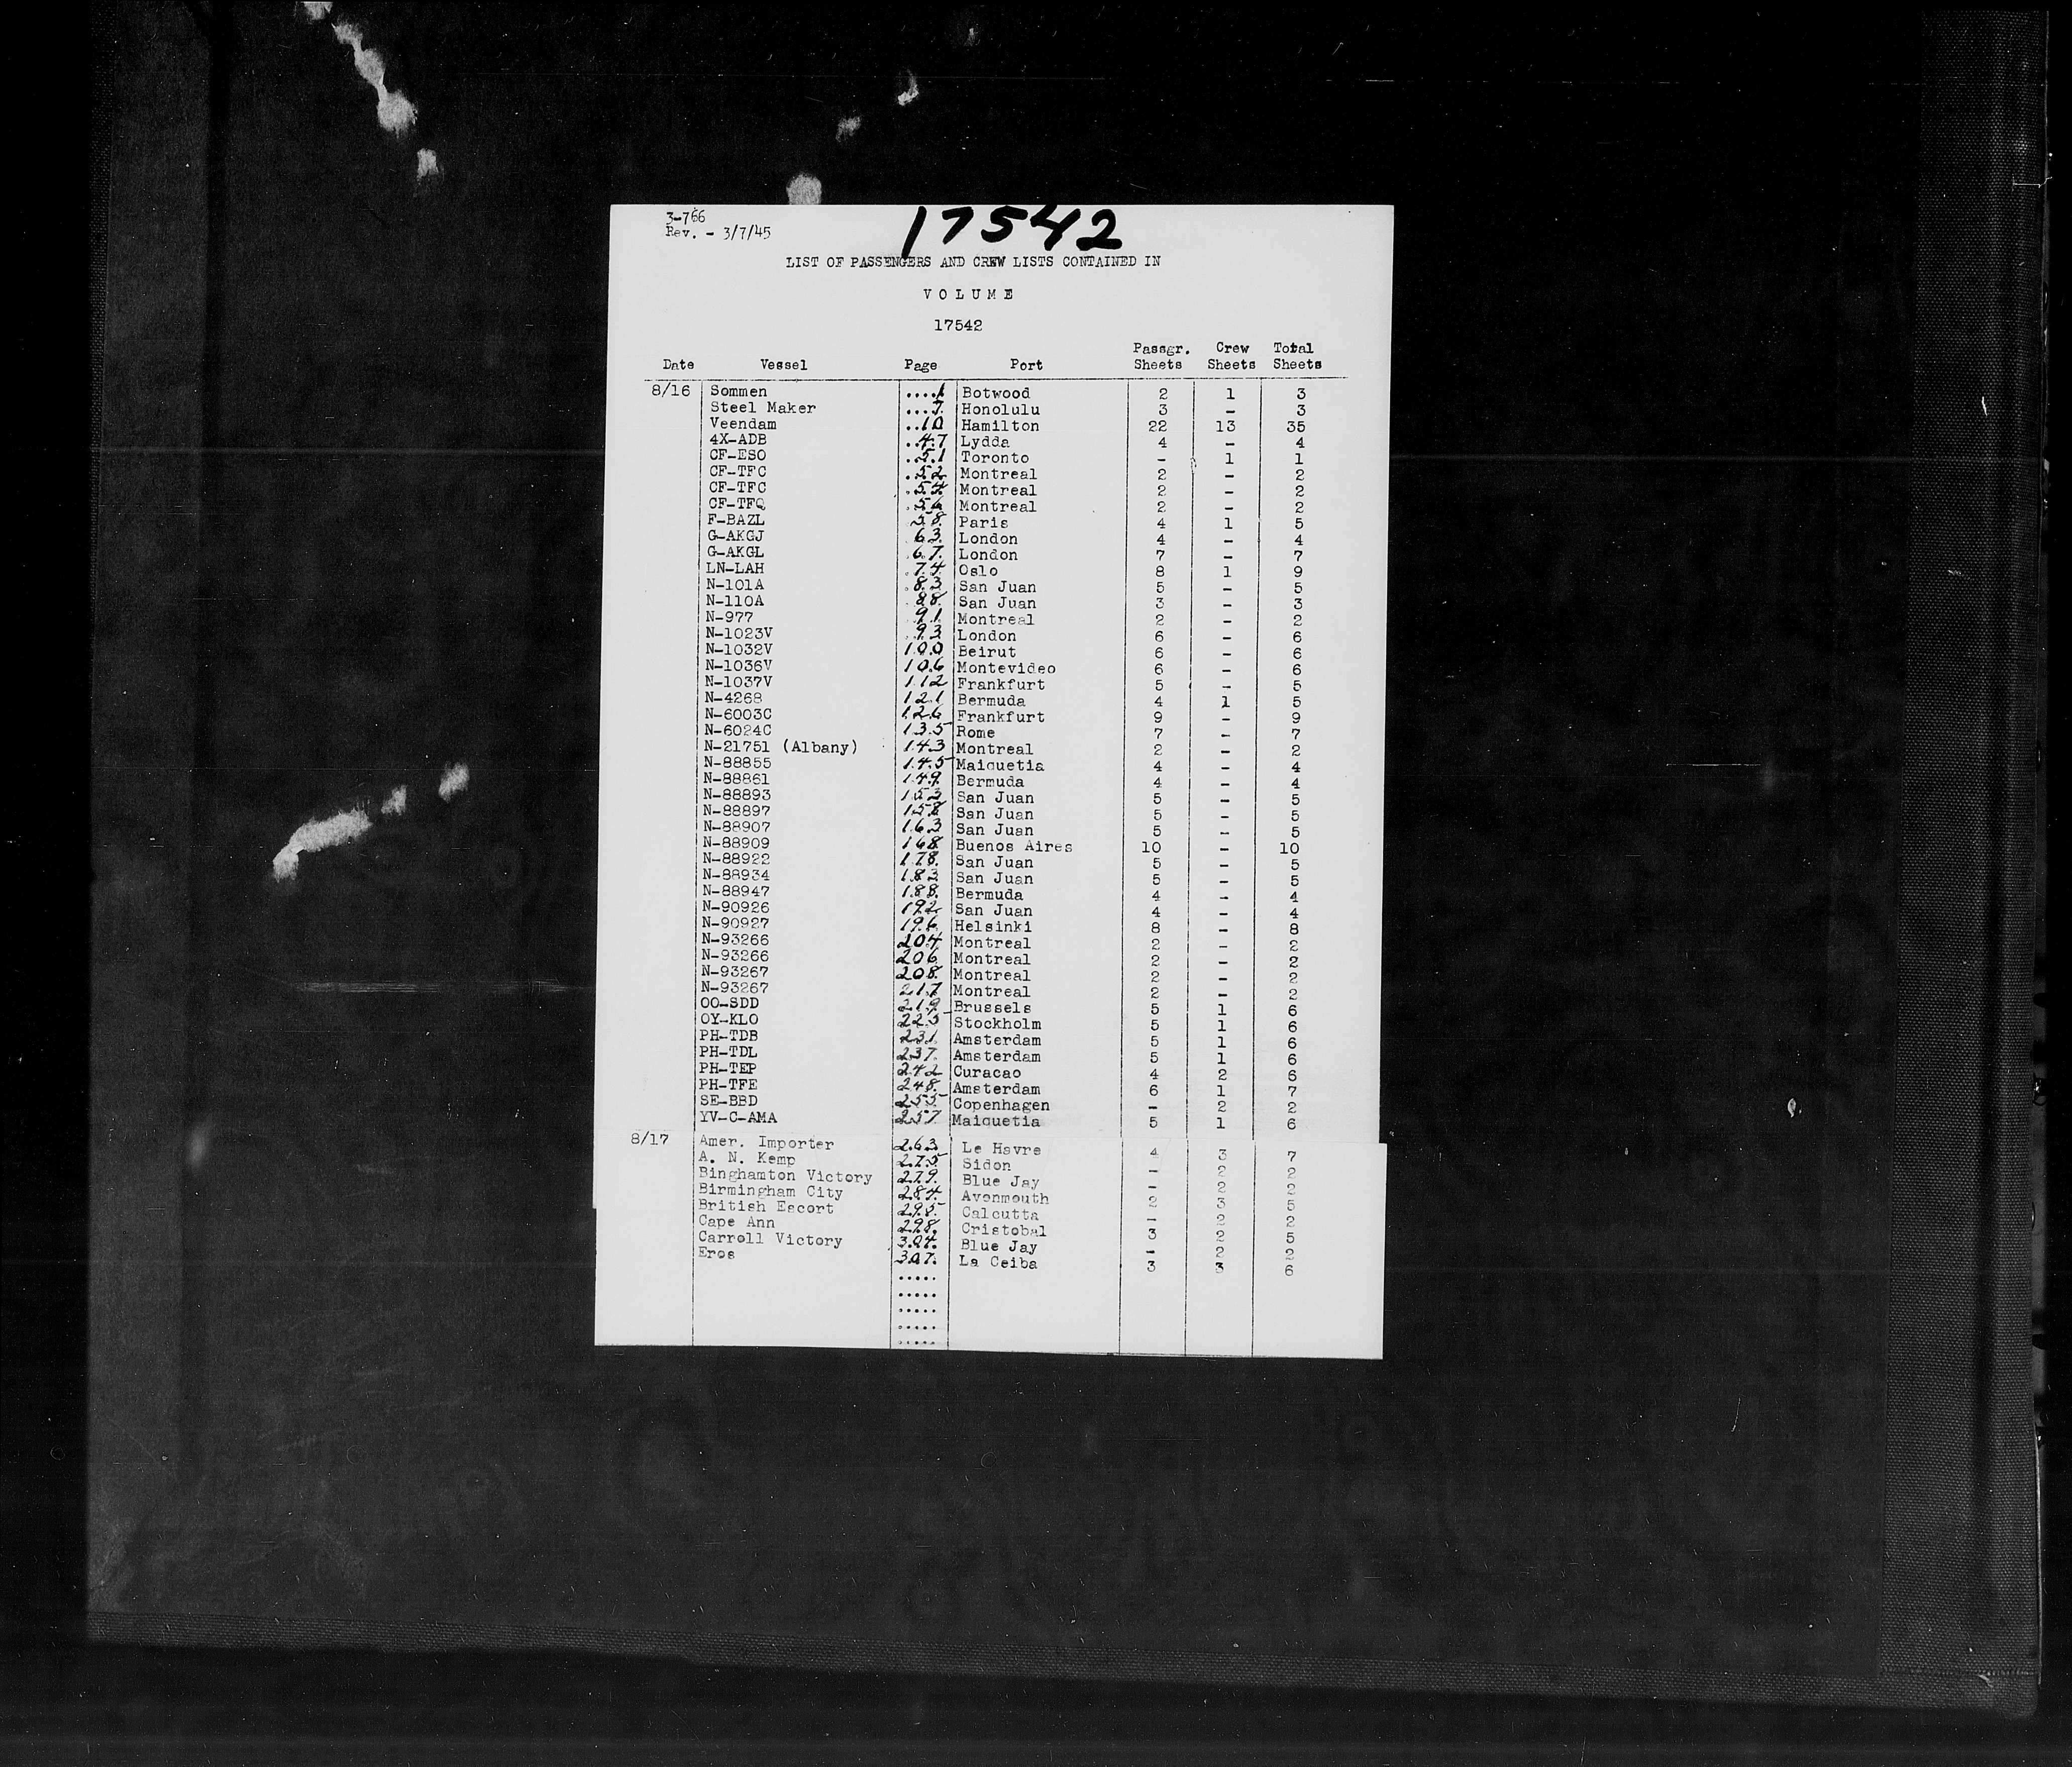 3-766
Rev. - 3/7/45
17542
LIST OF PASSENGERS AND CREW LISTS CONTAINED IN
VOLUME
17542
Date Vessel Page Port Passgr. Sheets Crew Sheets Total Sheets
8/16 Sommen ....1 Botwood 2 1 3
Steel Maker ...7. Honolulu 3 - 3
Veendam ..10 Hamilton 22 13 35
4X-ADB ..47 Lydda 4 - 4
CF-ESO ..51 Toronto - 1 1
CF-TFC .52 Montreal 2 - 2
CF-TFC .54 Montreal 2 - 2
CF-TFQ .56 Montreal 2 - 2
F-BAZL 58. Paris 4 1 5
G-AKGJ 63. London 4 - 4
G-AKGL .67. London 7 - 7
LN-LAH .74. Oslo 8 1 9
N-101A .83 San Juan 5 - 5
N-110A 88. San Juan 3 - 3
N-977 91. Montreal 2 - 2
N-1023V .93 London 6 - 6
N-1032V 100 Beirut 6 - 6
N-1036V 106 Montevideo 6 - 6
N-1037V 112 Frankfurt 5 - 5
N-4268 121 Bermuda 4 1 5
N-6003C 126 Frankfurt 9 - 9
N-6024C 135 Rome 7 - 7
N-21751 (Albany) 143 Montreal 2 - 2
N-88855 145 Maiquetia 4 - 4
N-88861 149. Bermuda 4 - 4
N-88893 153 San Juan 5 - 5
N-88897 158 San Juan 5 - 5
N-88907 163 San Juan 5 - 5
N-88909 168 Buenos Aires 10 - 10
N-88922 178. San Juan 5 - 5
N-88934 183 San Juan 5 - 5
N-88947 188. Bermuda 4 - 4
N-90926 192 San Juan 4 - 4
N-90927 196. Helsinki 8 - 8
N-93266 204 Montreal 2 - 2
N-93266 206 Montreal 2 - 2
N-93267 208. Montreal 2 - 2
N-93267 217 Montreal 2 - 2
OO-SDD 219. Brussels 5 1 6
OY-KLO 225 Stockholm 5 1 6
PH-TDB 231. Amsterdam 5 1 6
PH-TDL 237. Amsterdam 5 1 6
PH-TEP 242 Curacao 4 2 6
PH-TFE 248. Amsterdam 6 1 7
SE-BBD 255 Copenhagen - 2 2
YV-C-AMA 257. Maiquetia 5 1 6
8/17 Amer. Importer 263. Le Havre 4 3 7
A. N. Kemp 275 Sidon - 2 2
Binghamton Victory 279. Blue Jay - 2 2
Birmingham City 284. Avonmouth 2 3 5
British Escort 295. Calcutta - 2 2
Cape Ann 298. Cristobal 3 2 5
Carroll Victory 304. Blue Jay - 2 2
Eros 307. La Ceiba 3 3 6
.....
.....
.....
.....
.....